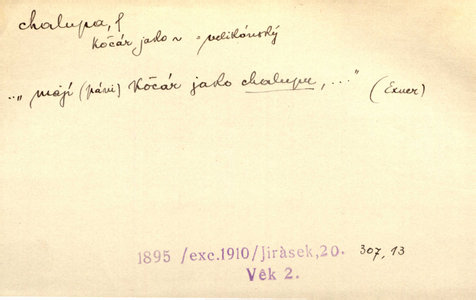 chalupa, f
kočár jako ~ = velikánský
..„mají (páni) kočár jako chalupu, ..." (Exner)
1895 /exc.1910/Jiràsek,20. 307, 13
Věk 2.